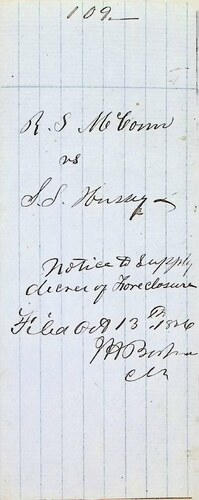 109
R. S. McComn
vs
S. S. Hussey
Notice to Supply
decree of Foreclosure
Filed Oct 13th
Clk